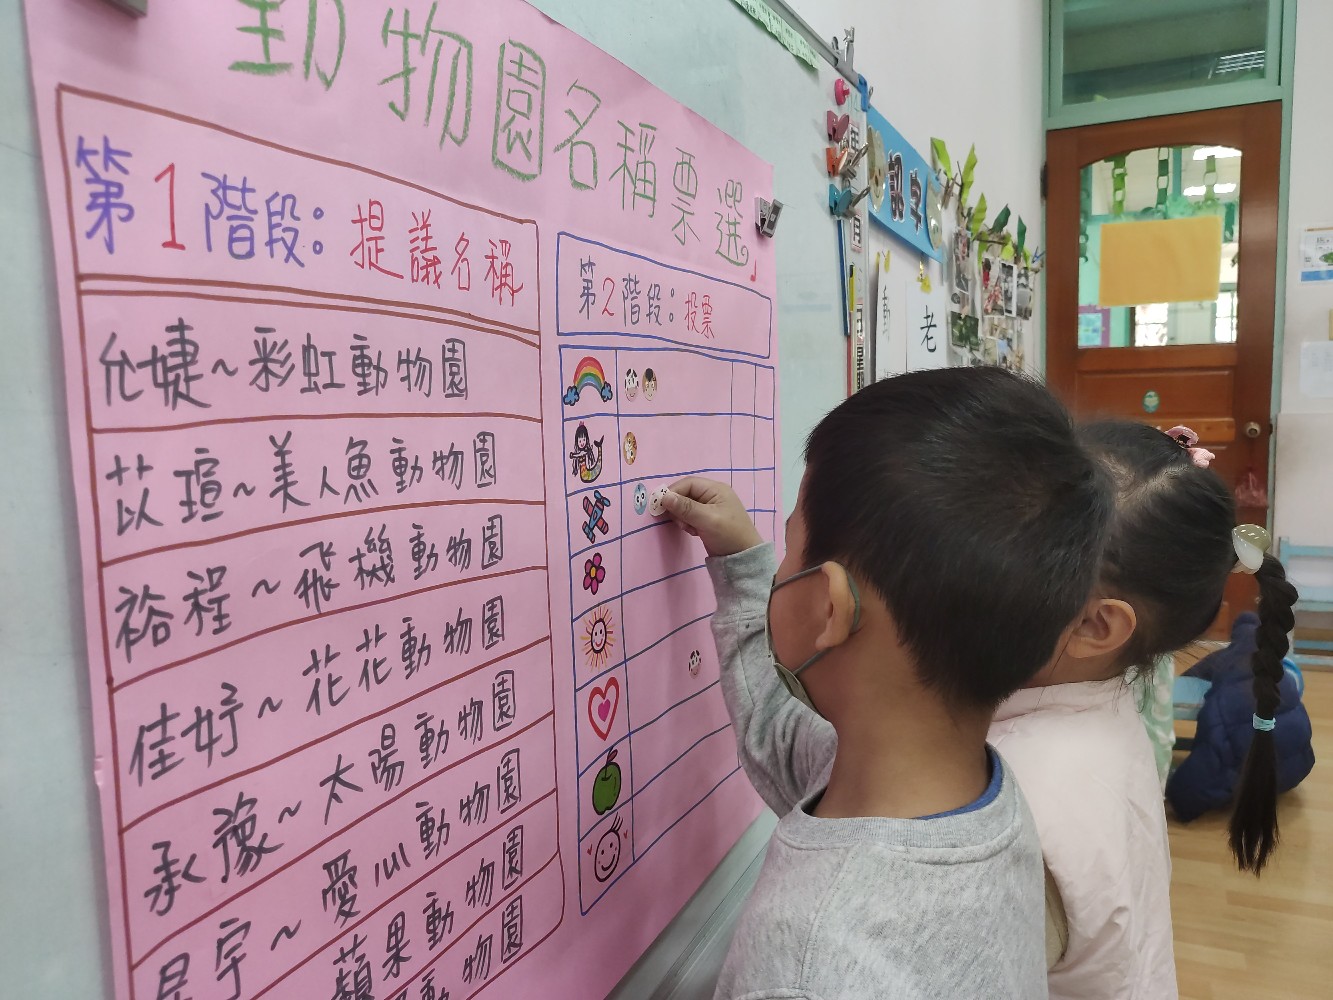 動物園名稱票選
第1階段：提議名稱
允婕~彩虹動物園
苡瑄~美人魚動物園
裕程~飛機動物園
佳妤~花花動物園
承豫~太陽動物園
宇~愛心動物園
蘋果動物園
動物園
第2階段：投票
老